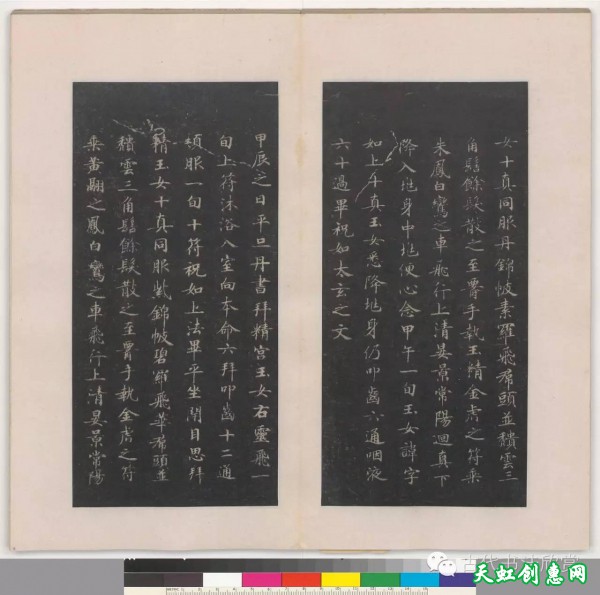 女十真同服丹錦帔素羅飛帬頭並穨雲三
角髻餘髮散之至膏手執玉精金虎之符乗
朱鳳白鸞之車飛行上清晏景常陽迴真下
降入地身中地便心念甲午一旬玉女諱字
如上午真玉女悉降地身仍叩齒六通咽液
六十過畢祝如太玄之文
甲辰之日平旦丹書拜精宫玉女右靈飛一
旬上符沐浴入室向本命六拜叩齒十二通
頓服一旬十符祝如上法畢平坐閇目思拜
精玉女十真同服紫錦帔碧羅飛華帬頭並
穨雲三角髻餘髮散之至膏手執金虎之符
乗黄翮之鳳白鸞之車飛行上清晏景常陽
古代书法欣赏
天虹创惠网